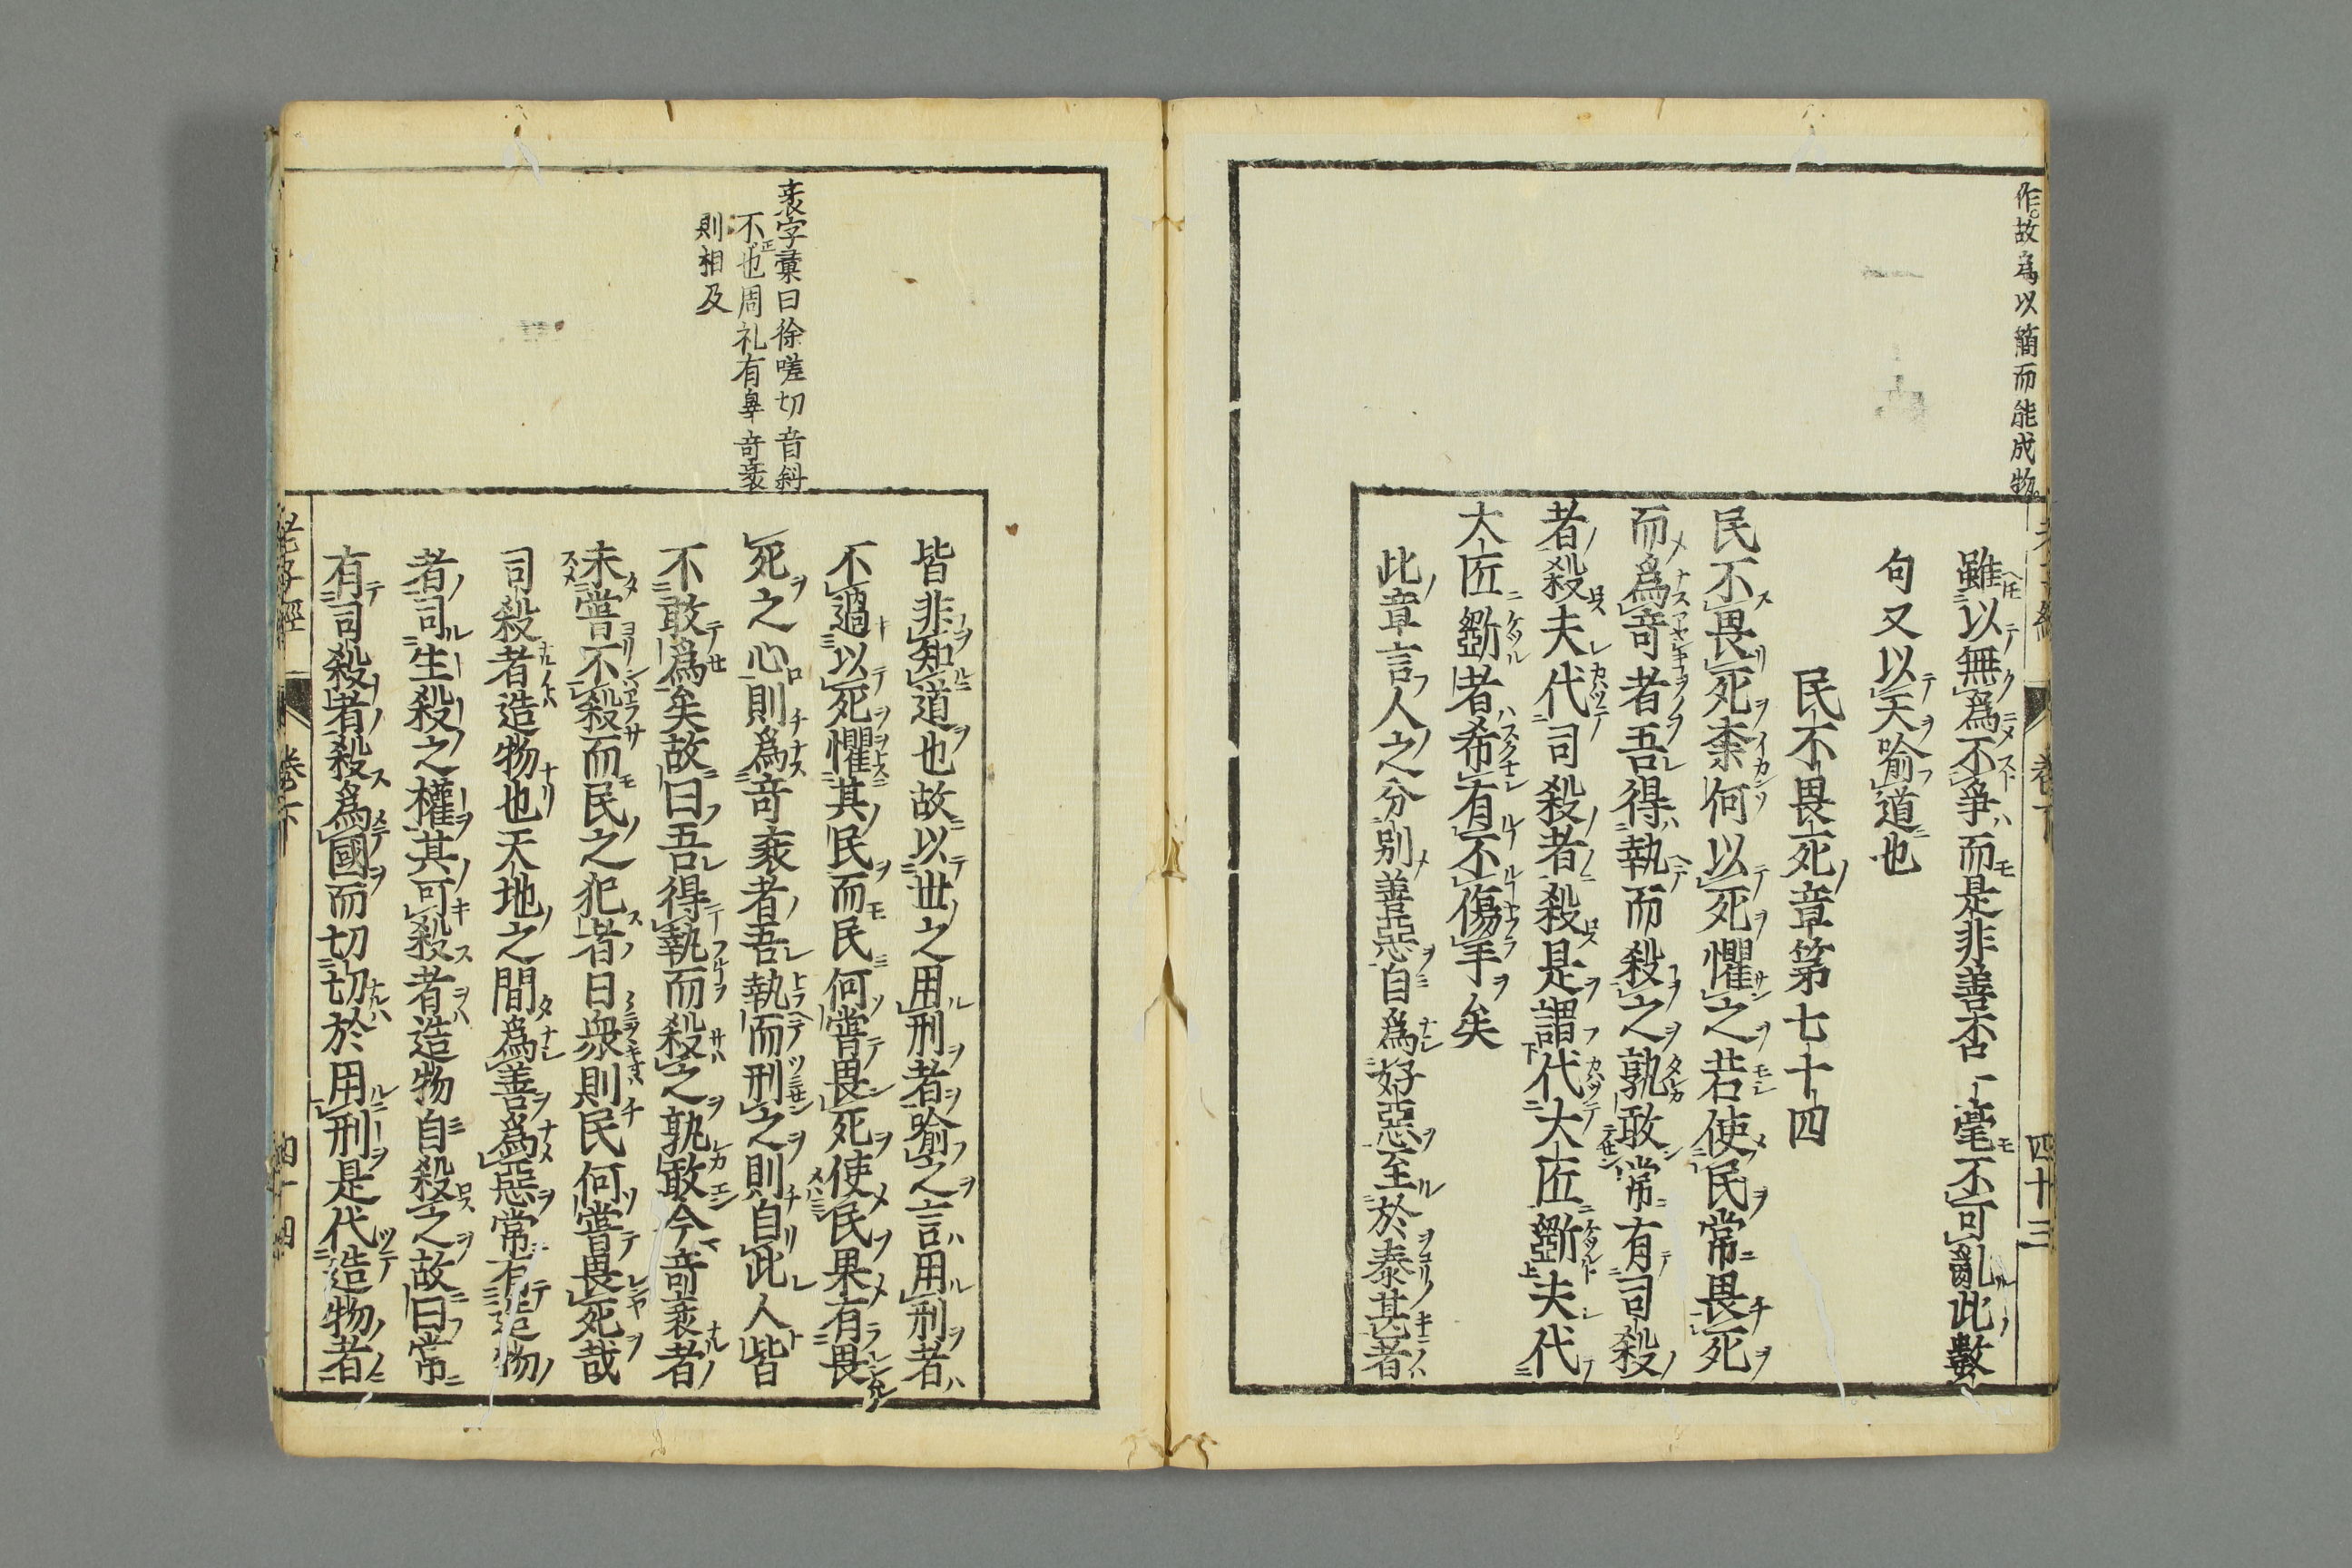 作。故爲以簡而能成物。
雖以無爲不爭而是非善否一毫不可亂此數
句又以天喩道也
民不畏死章第七十四
民不畏死柰何以死懼之若使民常畏死
而爲竒者吾得執而殺之孰敢常有司殺
者殺夫代司殺者殺是謂代大匠斵夫代
大匠斵者希有不傷手矣
此章言人之分別善惡自爲好惡至於泰甚者
四十三
衺字彙曰徐嗟切音斜
不正也周礼有辠竒衺
則相及
皆非知道也故以世之用刑者喩之言用刑者
不過以死懼其民而民何嘗畏死使民果有畏
死之心則爲竒衺者吾執而刑之則自此人皆
不敢爲矣故曰吾得執而殺之孰敢今竒衺者
未嘗不殺而民之犯者日衆則民何嘗畏死哉
司殺者造物也天地之間爲善爲惡常有造物
者司生殺之權其可殺者造物自殺之故曰常
有司殺者殺爲國而切切於用刑是代造物者
老子經
卷下
四十四